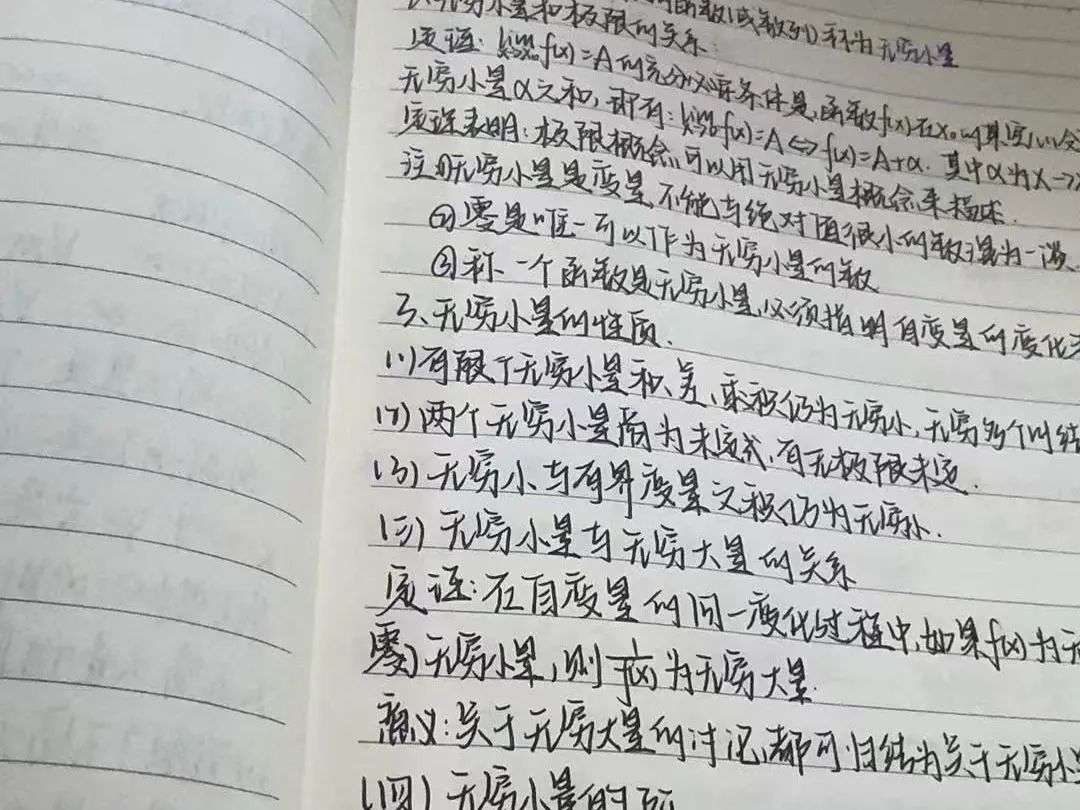 无穷小量和极限的关系:
定理: lim f(x)=A的充分必要条件是,函数f(x)在x₀的某
无穷小量α之和,即有: lim f(x)=A⇔f(x)=A+α. 其中α为x→
定理表明:极限概念,可以用无穷小量概念来描述.
注①无穷小量是变量,不能与绝对值很小的数混为一谈.
②零是唯一可以作为无穷小量的数
③称一个函数是无穷小量,必须指明自变量的变化
3、无穷小量的性质.
(1)有限个无穷小量和、差、乘积仍为无穷小,无穷多个的结
(2)两个无穷小量商为未定式,有无极限未定.
(3)无穷小与有界变量之积仍为无穷小.
(三)无穷小量与无穷大量的关系
定理:在自变量的同一变化过程中,如果f(x)为
无穷小量,则1/f(x)为无穷大量.
意义:关于无穷大量的讨论,都可归结为关于无穷小量
(四)无穷小量的